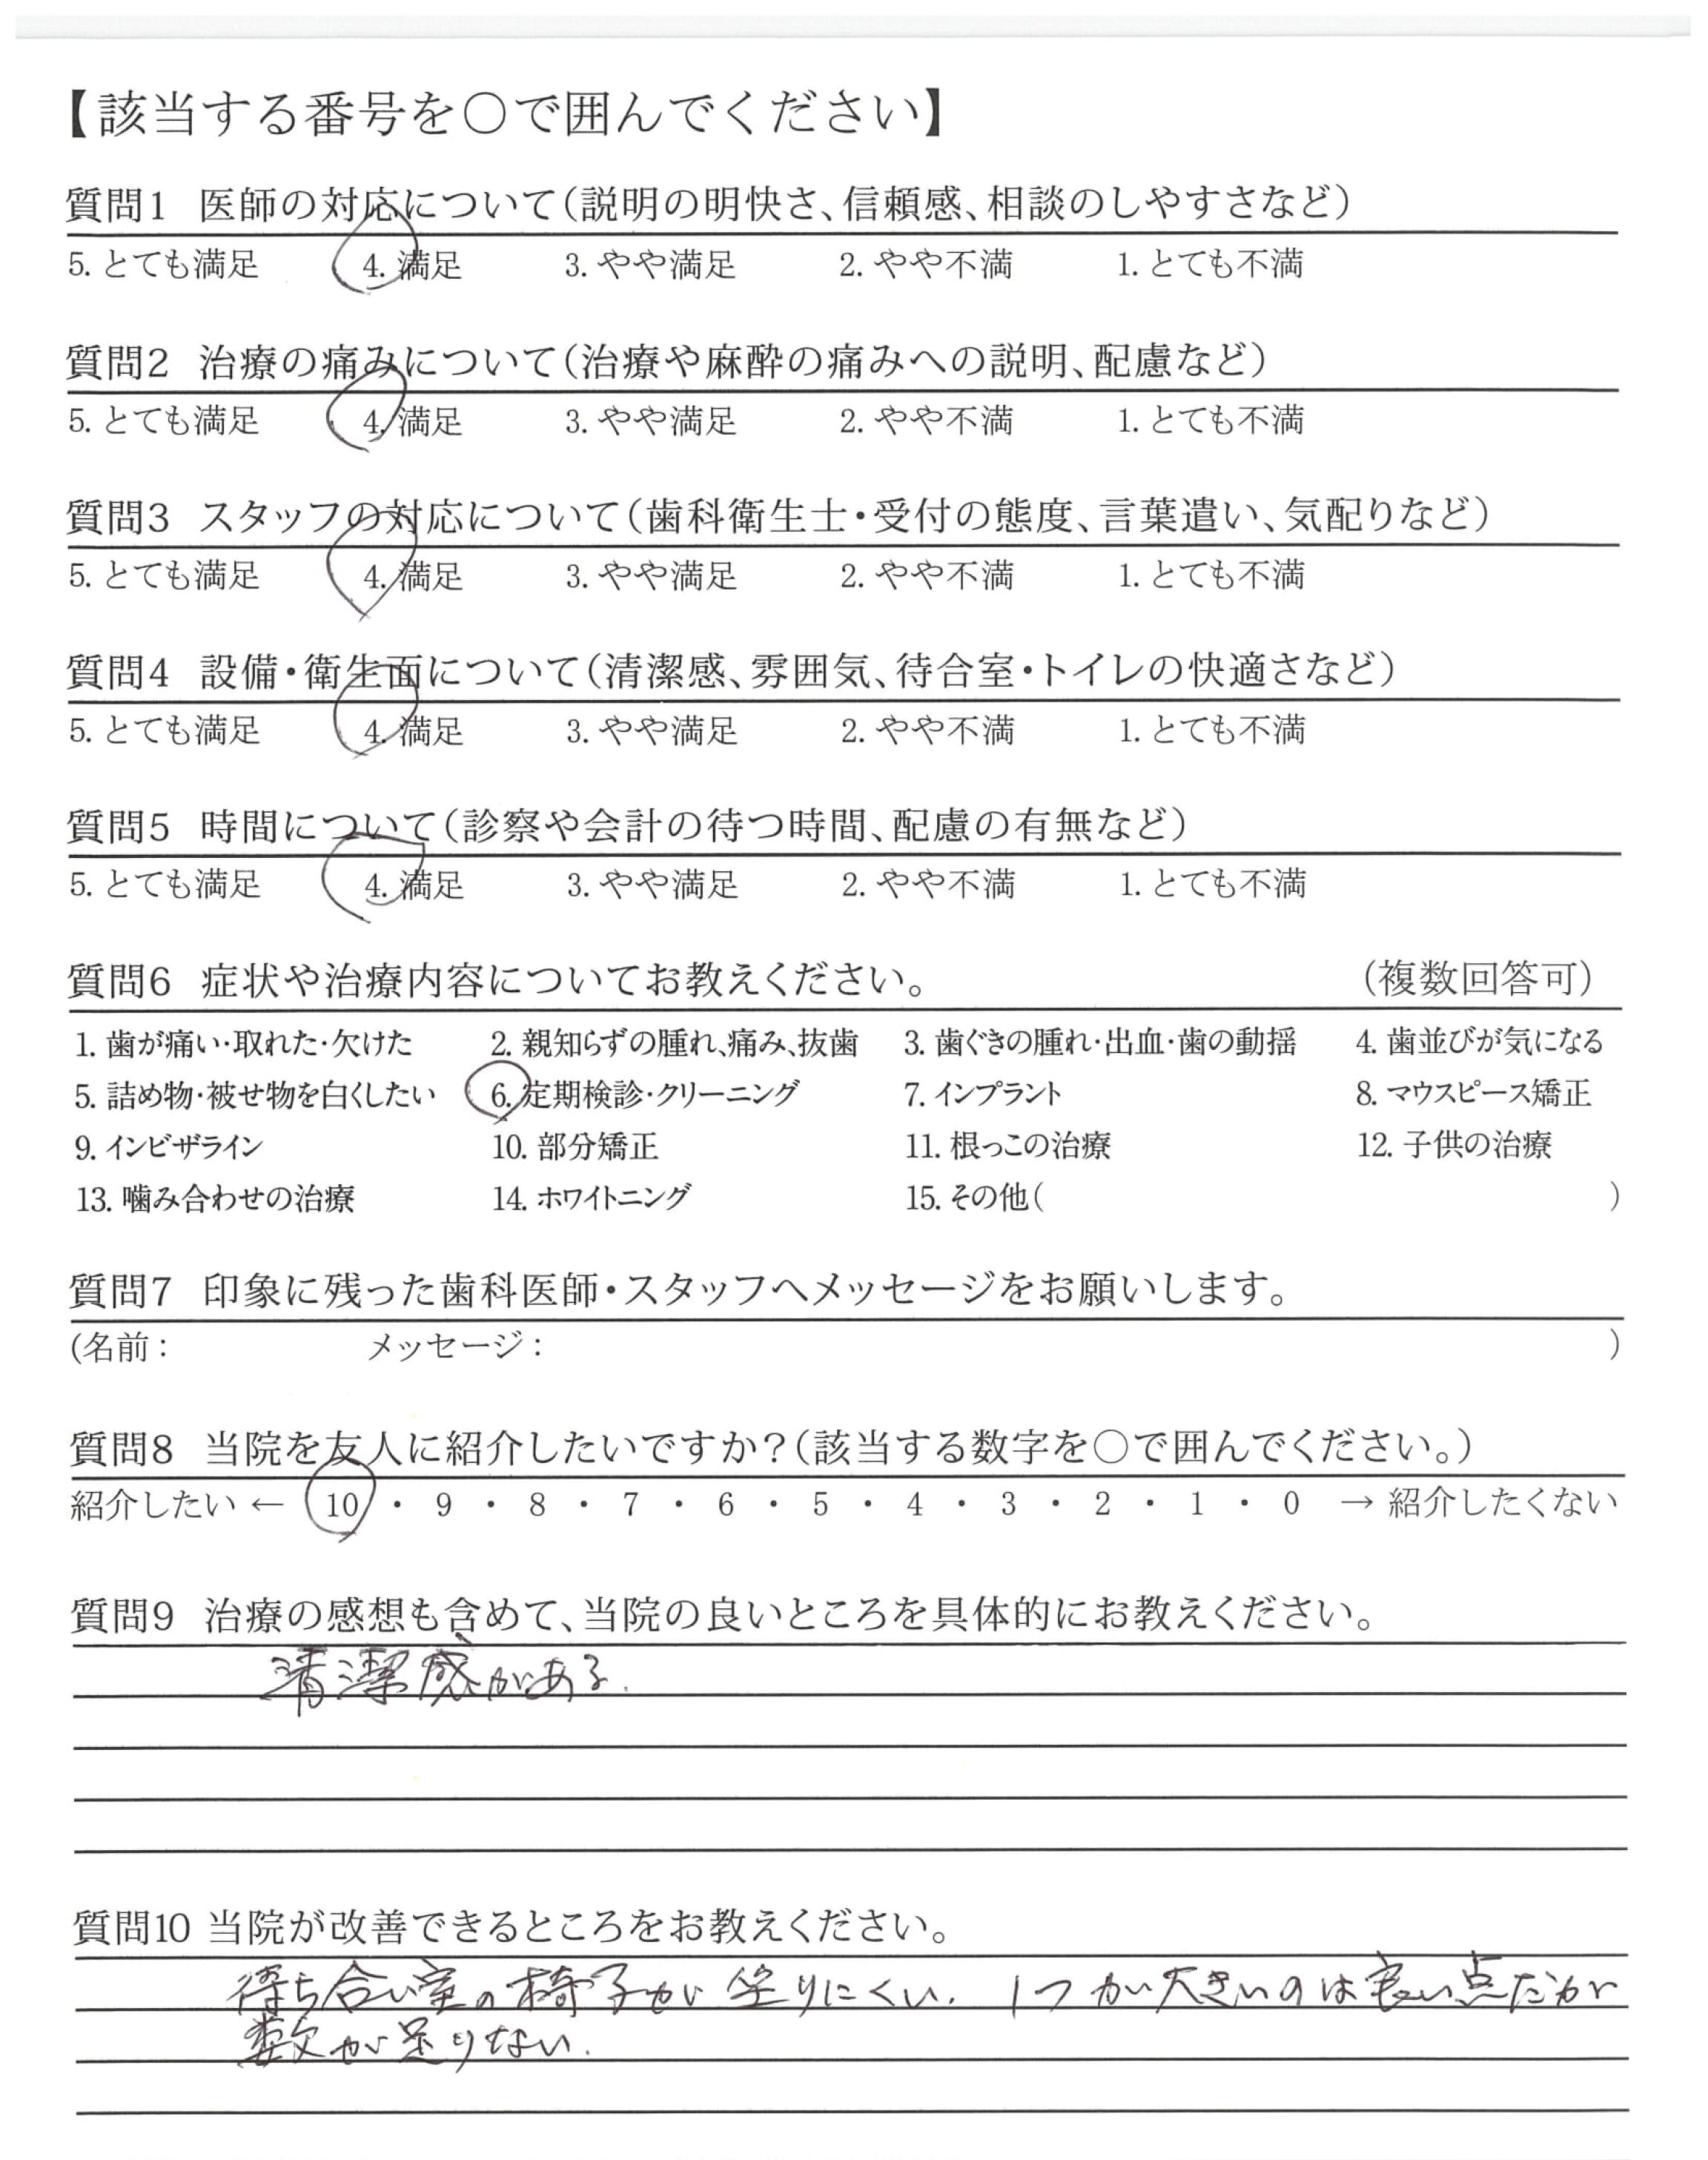 【該当する番号を○で囲んでください】
質問1 医師の対応について(説明の明快さ、信頼感、相談のしやすさなど)
5. とても満足 4. 満足 3. やや満足 2. やや不満 1. とても不満
質問2 治療の痛みについて(治療や麻酔の痛みへの説明、配慮など)
5. とても満足 4. 満足 3. やや満足 2. やや不満 1. とても不満
質問3 スタッフの対応について(歯科衛生士・受付の態度、言葉遣い、気配りなど)
5. とても満足 4. 満足 3. やや満足 2. やや不満 1. とても不満
質問4 設備・衛生面について(清潔感、雰囲気、待合室・トイレの快適さなど)
5. とても満足 4. 満足 3. やや満足 2. やや不満 1. とても不満
質問5 時間について(診察や会計の待つ時間、配慮の有無など)
5. とても満足 4. 満足 3. やや満足 2. やや不満 1. とても不満
質問6 症状や治療内容についてお教えください。 (複数回答可)
1. 歯が痛い・取れた・欠けた 2. 親知らずの腫れ、痛み、抜歯 3. 歯ぐきの腫れ・出血・歯の動揺 4. 歯並びが気になる
5. 詰め物・被せ物を白くしたい 6. 定期検診・クリーニング 7. インプラント 8. マウスピース矯正
9. インビザライン 10. 部分矯正 11. 根っこの治療 12. 子供の治療
13. 噛み合わせの治療 14. ホワイトニング 15. その他( )
質問7 印象に残った歯科医師・スタッフへメッセージをお願いします。
(名前: メッセージ: )
質問8 当院を友人に紹介したいですか?(該当する数字を○で囲んでください。)
紹介したい ← 10 ・ 9 ・ 8 ・ 7 ・ 6 ・ 5 ・ 4 ・ 3 ・ 2 ・ 1 ・ 0 → 紹介したくない
質問9 治療の感想も含めて、当院の良いところを具体的にお教えください。
清潔感がある.
質問10 当院が改善できるところをお教えください。
待ち合い室の椅子が坐りにくい. 1つが大きいのは良い点だが
数が足りない.